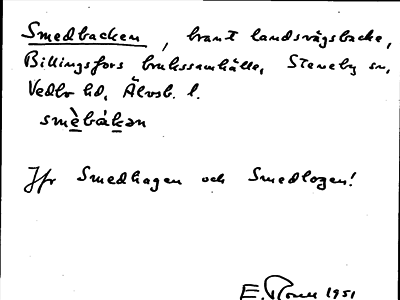 Smedbacken, brant landsvägsbacke,
Billingsfors brukssamhälle, Steneby sn,
Vedbo hd, Älvsb. l.
smèbákan
Jfr Smedhagen och Smedlogen!
E. 1951